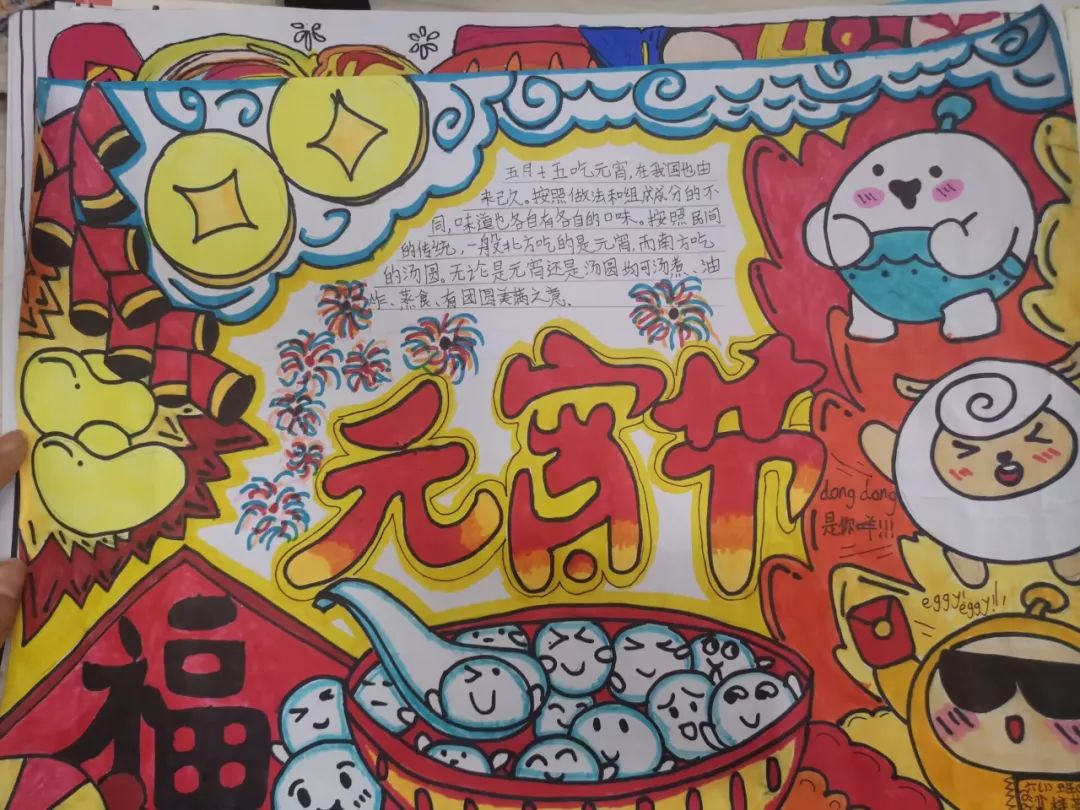 五月十五吃元宵,在我国也由
来已久。按照做法和组成成分的不
同,味道也各自有各自的口味。按照民间
的传统,一般北方吃的是元宵,而南方吃
的汤圆。无论是元宵还是汤圆均可汤煮、油
炸、蒸食、有团圆美满之意、
元宵节
dong dong
是你咩!!!
eggy!
eggy!!
福